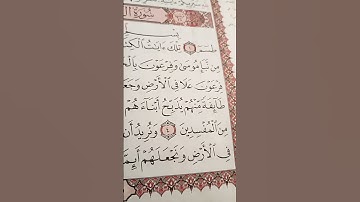 سُورَةُ
بِسْمِ
طسٓمٓ ١ تِلْكَ ءَايَٰتُ ٱلْكِتَٰ
مِن نَّبَإِ مُوسَىٰ وَفِرْعَوْنَ بِٱلْ
فِرْعَوْنَ عَلَا فِى ٱلْأَرْضِ وَجَعَ
طَآئِفَةً مِّنْهُمْ يُذَبِّحُ أَبْنَآءَهُمْ
مِنَ ٱلْمُفْسِدِينَ ٤ وَنُرِيدُ أَن
فِى ٱلْأَرْضِ وَنَجْعَلَهُمْ أَئِمَّ